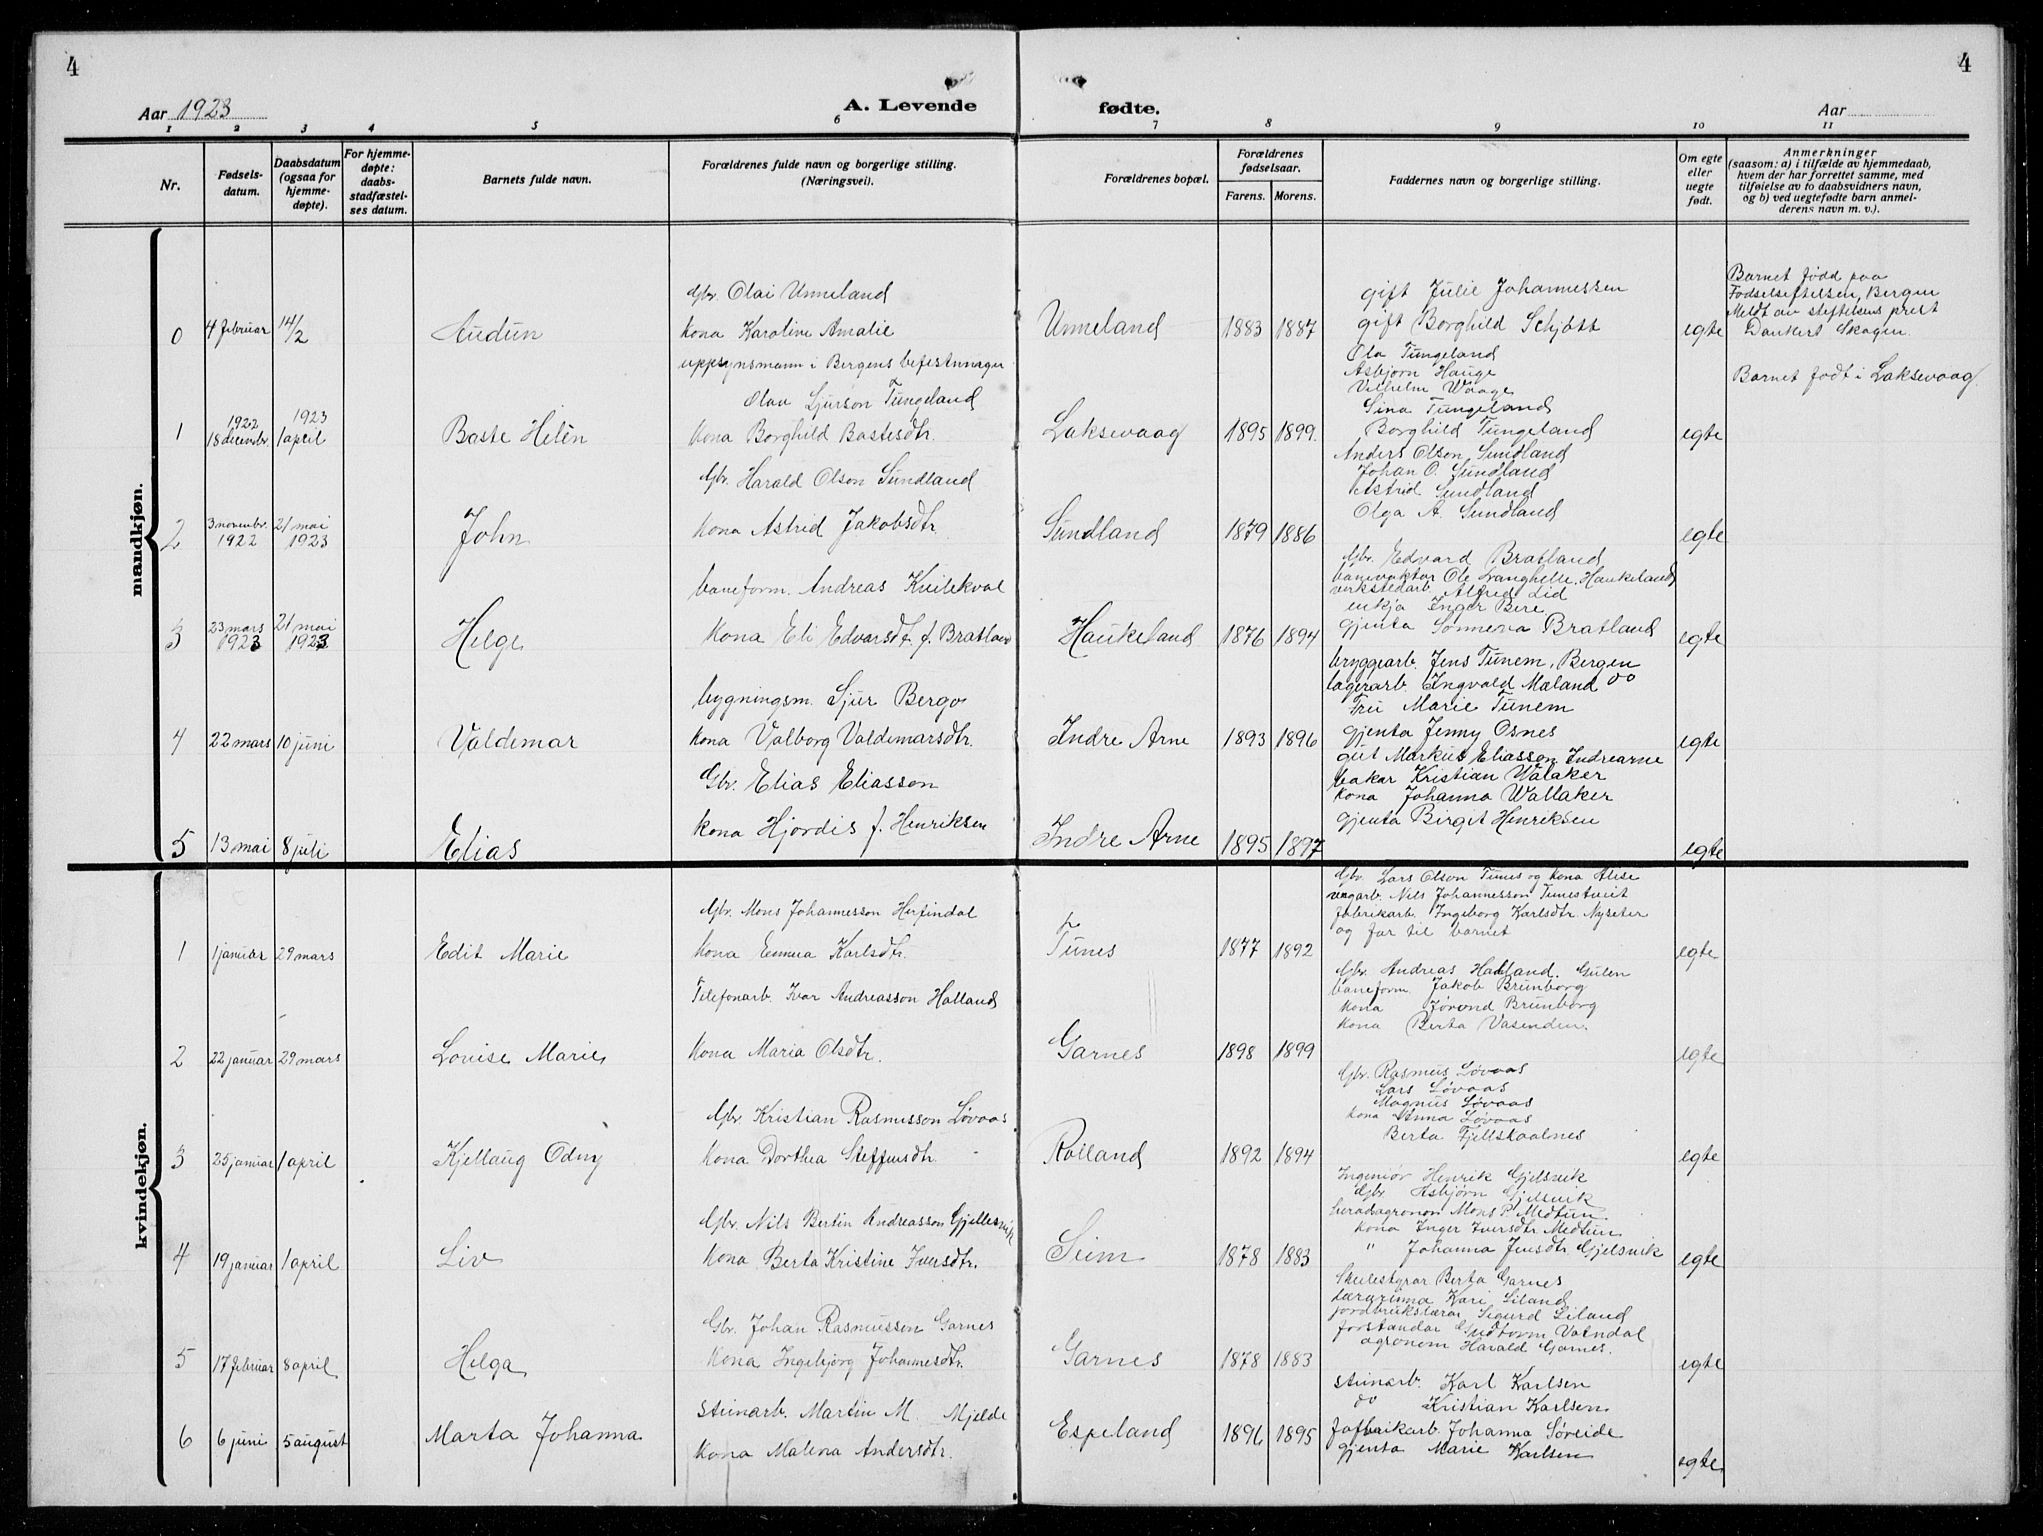 4
4
Aar 1923
A. Levende
fødte.
Aar
1 2 3 4 5 6 7 8 9 10 11
Nr.
Fødsels-
datum.
Daabsdatum
(ogsaa for
hjemme-
døpte).
For hjemme-
døpte:
daabs-
stadfæstel-
ses datum.
Barnets fulde navn.
Forældrenes fulde navn og borgerlige stilling.
(Næringsvei).
Forældrenes bopæl.
Forældrenes
fødselsaar.
Farens. Morens.
Faddernes navn og borgerlige stilling.
Om egte
eller
uegte
født.
Anmerkninger
(saasom: a) i tilfælde av hjemmedaab,
hvem der har forrettet samme, med
tilføielse av to daabsvidners navn,
og b) ved uegtefødte barn anmel-
derens navn m. v.).
mandkjøn.
Gbr. Olai Unneland
0 4 februar 14/2 Audun kona Karoline Amalie Unneland 1883 1887 egte
gift Julie Johannessen
gift Borghild Schjött
Barnet född paa
Födselstiftelsen, Bergen
Meldt av stiftelsens prest
Dankert Skagen.
uppsynsmann i Bergens
Olav Sjurson Tungeland
1 1922 18 decembr. 1923 1 april Baste Helên kona Borghild Bastesdtr. Laksevaag 1895 1899. egte
Ola Tungeland
Asbjørn Hauge
Vilhelm Waage
Sina Tungeland
Borghild Tungeland
Barnet født i Laksevaag
Gbr. Harald Olson Sundland
2 3 novembr. 1922 21 mai 1923 John kona Astrid Jakobsdtr. Sundland 1879 1886 egte
Anders Olson Sundland
Johan O. Sundland
Astrid Sundland
Olga A. Sundland
baneform. Andreas Kvilekval
3 23 mars 1923 21 mai 1923 Helge kona Eli Edvarsdtr. f. Bratland Haukeland 1876 1894 egte
Gbr. Edvard Bratland
banevaktar Ole Langhelle, Haukeland
verkstedarb. Alfred Lid
enkja Inger Bere
gjenta Sonneva Bratland
bygningsm. Sjur Bergo
4 22 mars 10 juni Valdemar kona Valborg Valdemarsdtr. Indre Arne 1893 1896 egte
bryggearb. Jens Tunem, Bergen
lagerarb. Ingvald Mæland do
Fru Marie Tunem
gjenta Jenny Osnes
Gbr. Elias Eliasson
5 13 mai 8 juli Elias kona Hjordis f. Henriksen Indre Arne 1895 1897 egte
gut Markus Eliasson Indrearne
bakar Kristian Walaker
kona Johanna Wallaker
gjenta Birgit Henriksen
kvindekjøn.
Gbr. Mons Johannesson Herfindal
1 1 januar 29 mars Edit Marie kona Emma Karlsdtr. Tunes 1877 1892 egte
Gbr. Lars Olson Tunes og kona Alise
vegarb. Nils Johannesson Tunestveit
fabrikarb. Ingeborg Karlsdtr. Nyseter
og far til barnet
Telefonarb. Ivar Andreasson Halland
2 22 januar 29 mars Louise Marie kona Maria Olsdtr. Garnes 1898 1899 egte
Gbr. Andreas Halland. Gulen
baneform. Jakob Brunborg
kona Jørond Brunborg
kona Berta Vasenden.
Gbr Kristian Rasmusson Løvaas
3 25 januar 1 april Kjellaug Odny kona Dorthea Steffensdtr. Rolland 1892 1894 egte
Gbr. Rasmus Løvaas
Lars Løvaas
Magnus Løvaas
kona Anna Løvaas
Berta Fjellskaalnes
Gbr. Nils Bertin Andreasson Gjellesvik
4 19 januar 1 april Liv kona Berta Kristine Iversdtr. Seim 1878 1883 egte
Ingeniør Henrik Gjelsvik
Gbr. Asbjørn Gjelsvik
heradsagronon Mons P. Medtun.
kona Inger Iversdtr Medtun
" Johanna Jensdtr. Gjelsvik
Gbr. Johan Rasmussen Garnes
5 17 februar 8 april Helga kona Ingebjørg Johannesdtr. Garnes 1878 1883 egte
Skulestyrar Berta Garnes
lærarinna Kari Liland
jordbrukslærar Sigurd Liland
forstandar Gudtorm Vatndal
agronom Harald Garnes.
steinarb. Martin M. Mjelde
6 6 juni 5 august Marta Johanna kona Malena Andersdtr. Espeland 1896 1895 egte
steinarb. Karl Karlsen
do Kristian Karlsen
fabrikarb. Johanna Søreide
gjenta Marie Karlsen